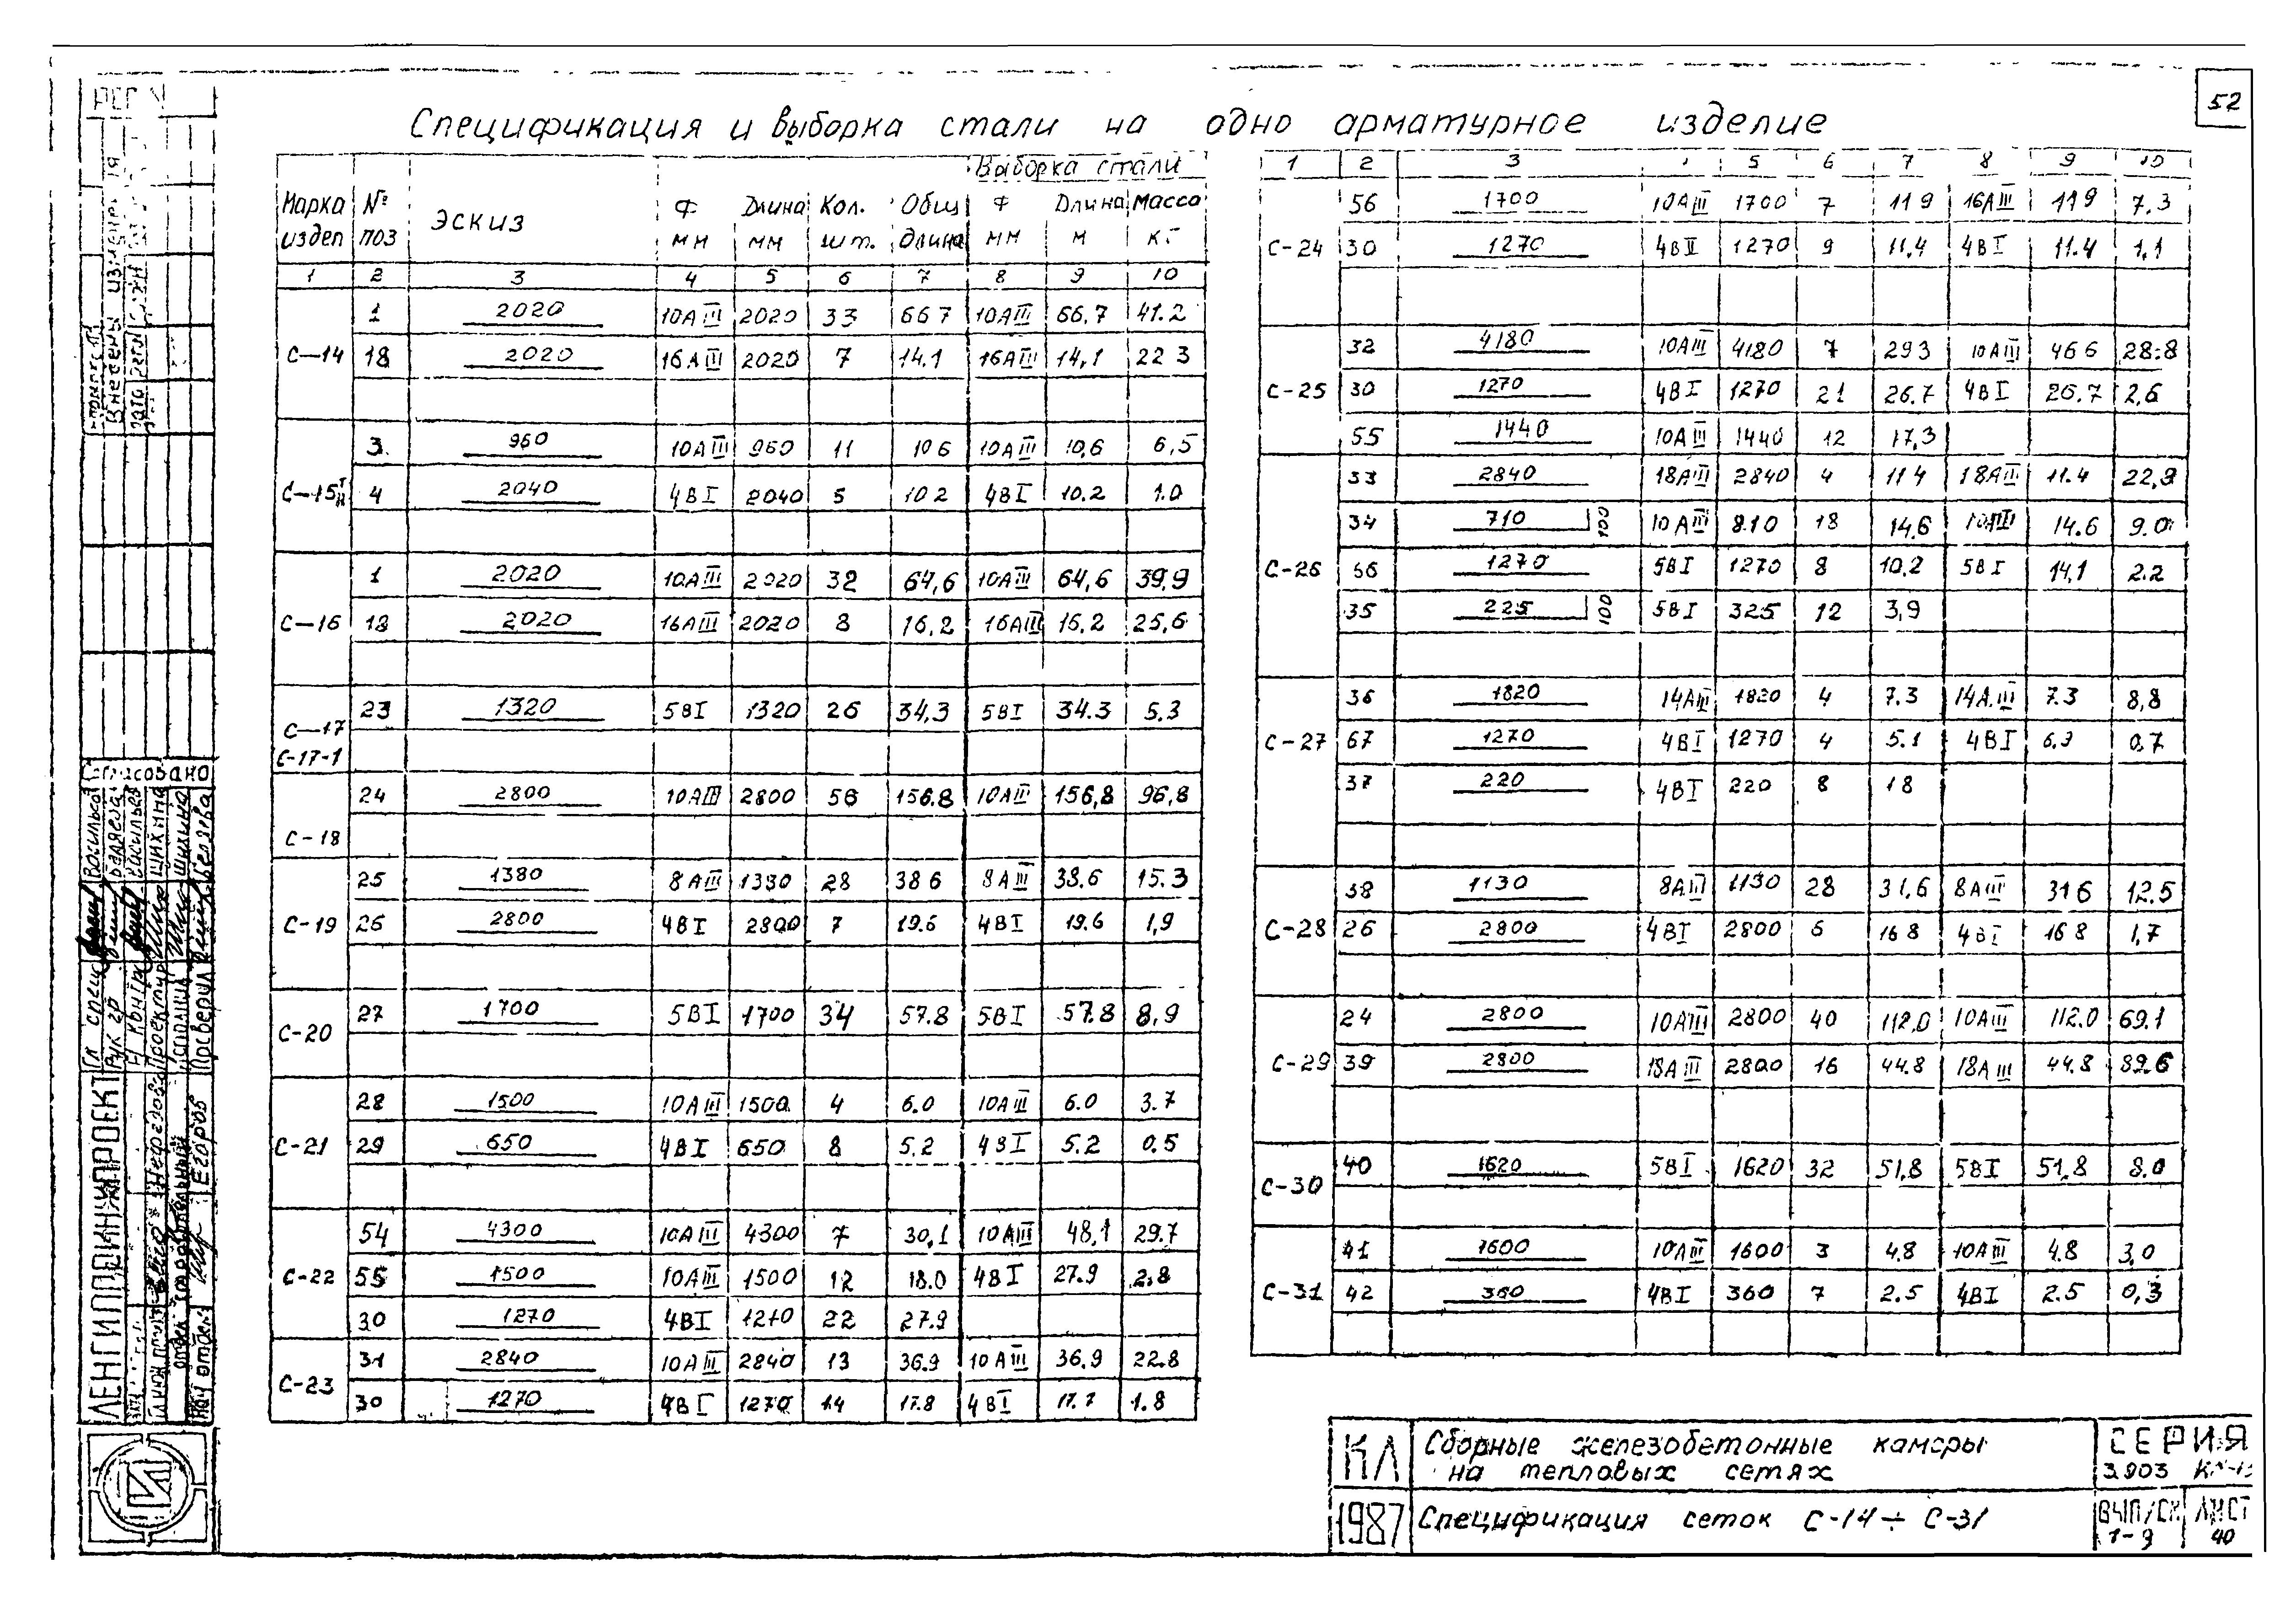 52
Спецификация и выборка стали на одно арматурное изделие
Марка издел | № поз | Эскиз | Ф мм | Длина мм | Кол. шт. | Общ Длина | Выборка стали Ф мм | Длина м | Масса кг
1 2 3 4 5 6 7 8 9 10
С-14
1 2020 10АIII 2020 33 66 7 10АIII 66,7 41.2
18 2020 16АIII 2020 7 14.1 16АIII 14,1 22 3
С-15 т н
3. 960 10АIII 960 11 10 6 10АIII 10,6 6,5
4 2040 4ВI 2040 5 10 2 4ВI 10.2 1.0
С-16
1 2020 10АIII 2020 32 64,6 10АIII 64,6 39,9
18 2020 16АIII 2020 8 16,2 16АIII 16.2 25,6
С-17
С-17-1
23 1320 5ВI 1320 26 34,3 5ВI 34.3 5.3
С-18
24 2800 10АIII 2800 56 156.8 10АIII 156,8 96,8
С-19
25 1380 8АIII 1380 28 38 6 8АIII 38.6 15.3
26 2800 4ВI 2800 7 19.6 4ВI 19.6 1,9
С-20
27 1700 5ВI 1700 34 57.8 5ВI 57.8 8,9
С-21
28 1500 10АIII 1500 4 6.0 10АIII 6.0 3.7
29 650 4ВI 650 8 5.2 4ВI 5.2 0.5
С-22
54 4300 10АIII 4300 7 30,1 10АIII 48,1 29.7
55 1500 10АIII 1500 12 18.0 4ВI 27.9 2.8
30 1270 4ВI 1270 22 27.9
С-23
31 2840 10АIII 2840 13 36.9 10АIII 36.9 22.8
30 1270 4ВI 1270 14 17.8 4ВI 17.7 1.8
1 2 3 5 6 7 8 9 10
С-24
56 1700 10АIII 1700 7 11 9 16АIII 11 9 7.3
30 1270 4ВII 1270 9 11,4 4ВI 11.4 1,1
С-25
32 4180 10АIII 4180 7 29 3 10АIII 46 6 28.8
30 1270 4ВI 1270 21 26.7 4ВI 26.7 2,6
55 1440 10АIII 1440 12 17,3
С-26
33 2840 18АIII 2840 4 11 4 18АIII 11.4 22,9
34 710 100 10АIII 810 18 14.6 10АIII 14.6 9.0
66 1270 5ВI 1270 8 10,2 5ВI 14,1 2.2
35 225 100 5ВI 325 12 3,9
С-27
36 1820 14АIII 1820 4 7.3 14АIII 7.3 8,8
67 1270 4ВI 1270 4 5.1 4ВI 6.9 0.7
37 220 4ВI 220 8 1 8
С-28
38 1130 8АIII 1130 28 31.6 8АIII 31 6 12.5
26 2800 4ВI 2800 6 16 8 4ВI 16 8 1,7
С-29
24 2800 10АIII 2800 40 112.0 10АIII 112.0 69.1
39 2800 18АIII 2800 16 44.8 18АIII 44.8 89.6
С-30
40 1620 5ВI 1620 32 51,8 5ВI 51,8 8.0
С-31
41 1600 10АIII 1600 3 4.8 10АIII 4.8 3,0
42 360 4ВI 360 7 2.5 4ВI 2.5 0,3
КЛ
Сборные железобетонные камеры
на тепловых сетях
СЕРИЯ
3.903
1987
Спецификация сеток С-14÷С-31
ВЫПУСК
1-9
ЛИСТ
40
Согласовано
ЛЕНГИПРОИНЖПРОЕКТ
Гл спец
Рук гр
Н контр
Проектир
Исполнил
Проверил
Шихина
Шихина
Беляева
Егоров
Нач отдела
Внесены измен